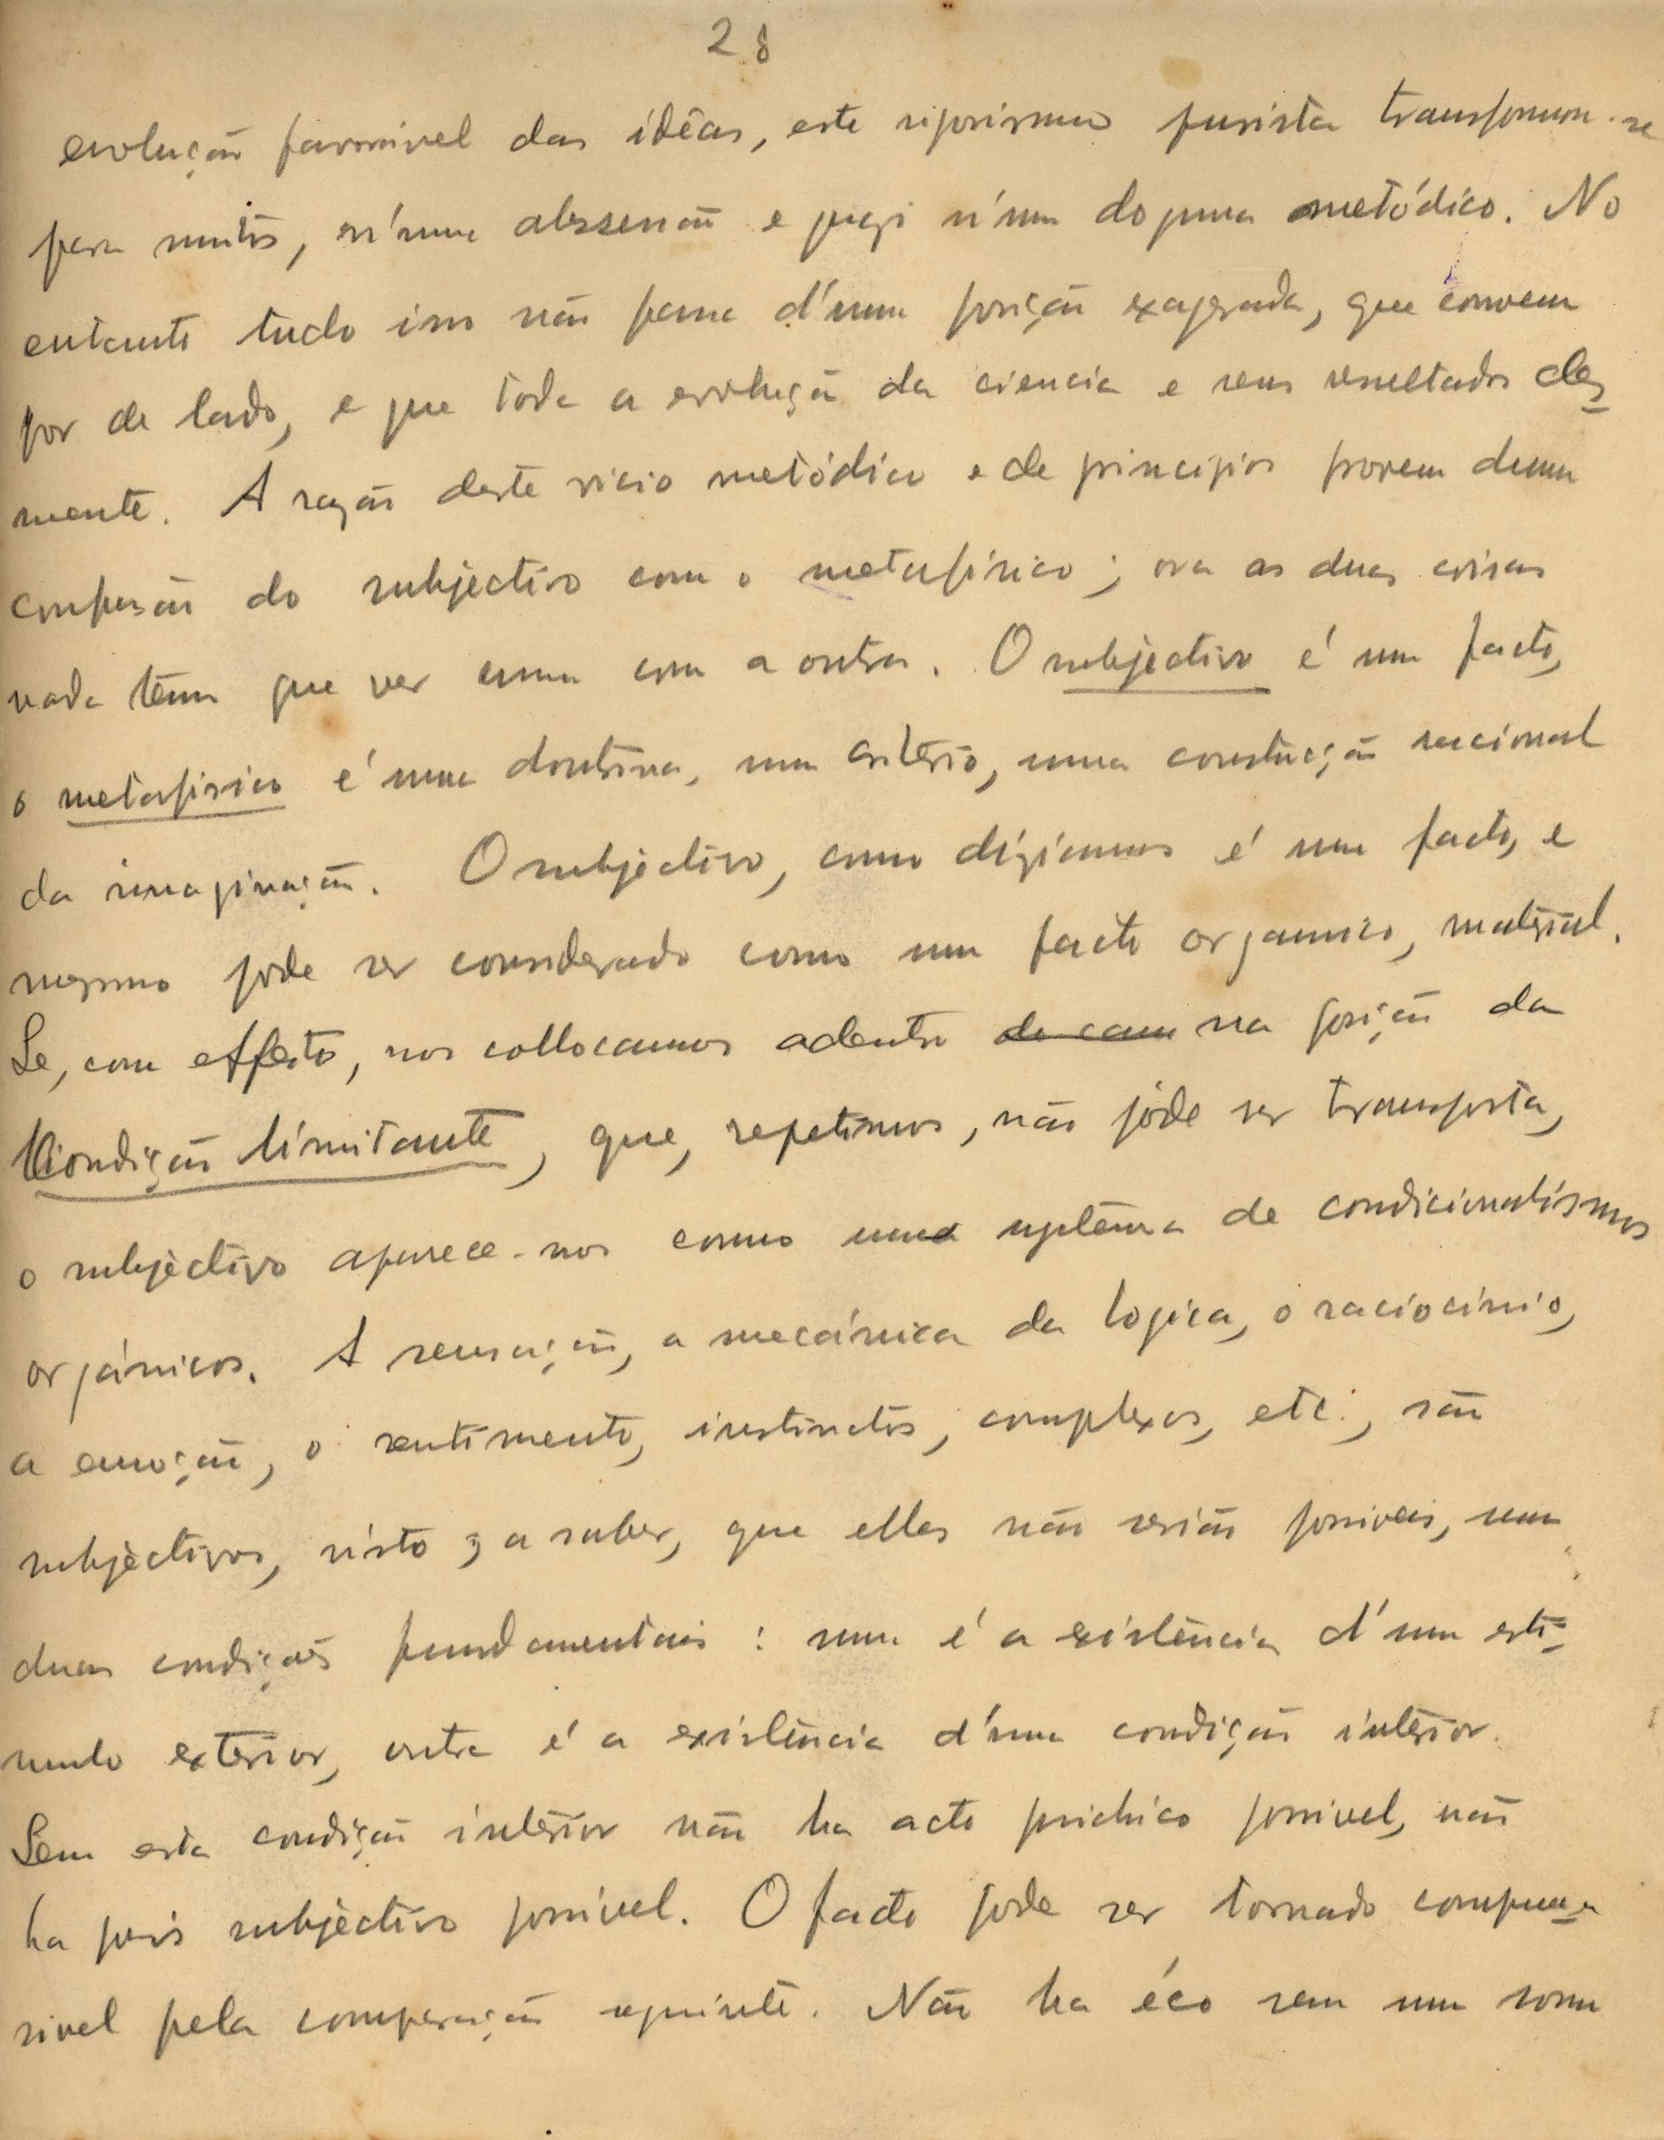 28
evolução favoravel das idêas, este rigorismo purista transforma-se
para muitos, n'uma obssessão e quazi n'um dogma metódico. No
entanto tudo isso não passa d'uma posição exagerada, que convem
por de lado, e que toda a evolução da ciencia e seus resultados des-
mente. A razão deste vicio metódico e de principios provem duma
confusão do subjectivo com o metafisico; ora as duas coisas
nada têem que ver uma com a outra. O subjectivo é um facto,
o metafisico é uma doutrina, um critério, uma construção racional
da imaginação. O subjectivo, como diziamos é um facto, e
mesmo pode ser considerado como um facto organico, material.
Se, com effeito, nos collocamos adentro do cam na posição da
Condição limitante, que, repetimos, não póde ser transposta,
o subjectivo aparece-nos como um systêma de condicionalismos
orgánicos. A sensação, a mecánica da logica, o raciocinio,
a emoção, o sentimento, instinctos, complexos, etc., são
subjectivos, visto a saber, que elles não serião possiveis, sem
duas condições fundamentais: uma é a existência d'um esti-
mulo exterior, outra é a existência d'uma condição intérior.
Sem esta condição intérior não ha acto psichico possivel, não
ha pois subjectivo possivel. O facto pode ser tornado compreen-
sivel pela comparação seguinte. Não ha éco sem um som